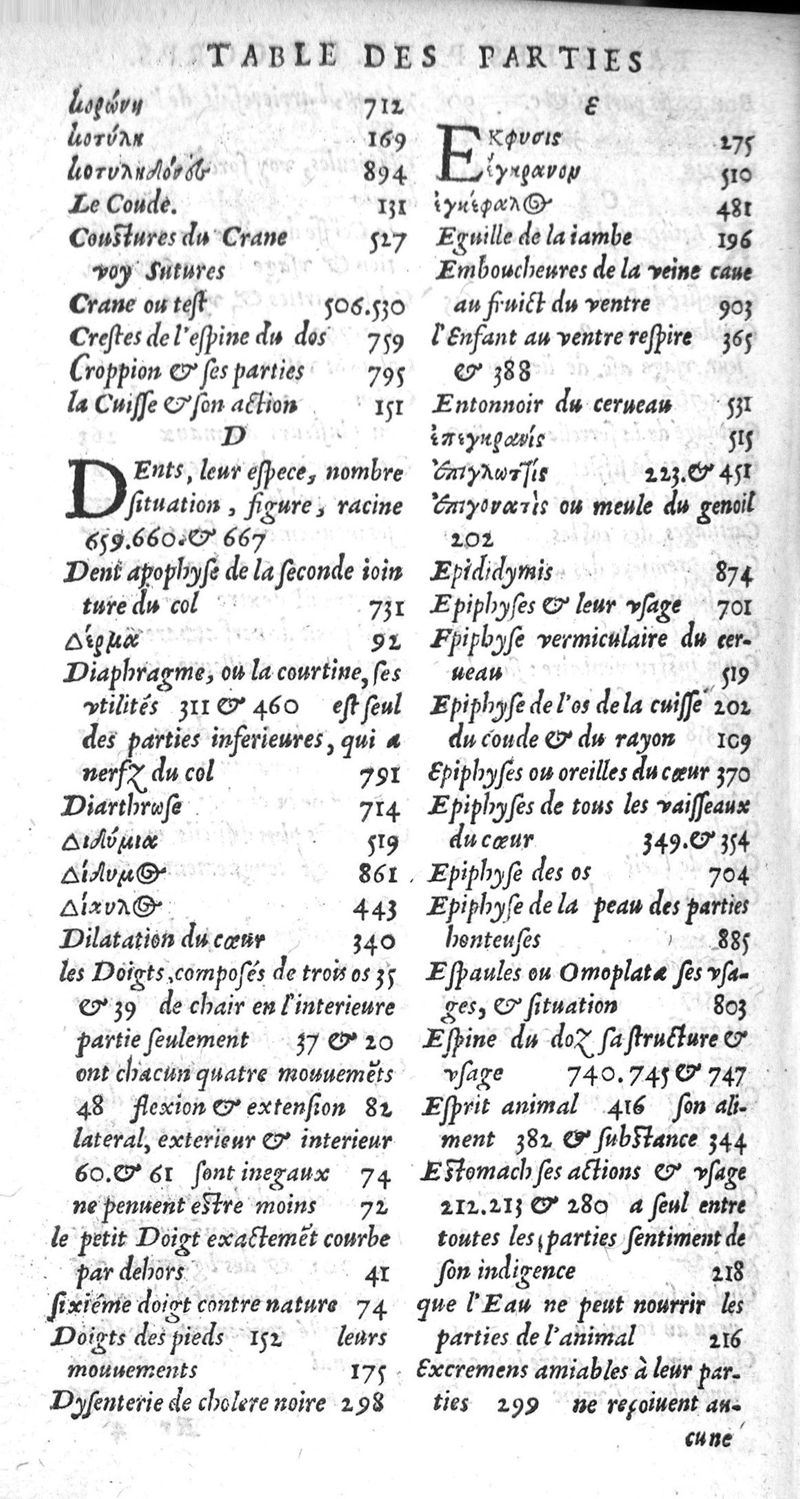 TABLE DES PARTIES
κορώνη 712
κοτύλη 169
κοτυληδόνες 894
Le Coude. 131
Coustures du Crane 527
voy Sutures
Crane ou test 506.530
Crestes de l'espine du dos 759
Croppion & ses parties 795
la Cuisse & son action 151
D
DEnts, leur espece, nombre
situation, figure, racine
659.660.& 667
Dent apophyse de la seconde ioin
ture du col 731
Δέρμα 92
Diaphragme, ou la courtine, ses
vtilités 311 & 460 est seul
des parties inferieures, qui a
nerfz du col 791
Diarthrose 714
Διδύμια 519
Δίδυμος 861
Δίαυλος 443
Dilatation du cœur 340
les Doigts, composés de trois os 35
& 39 de chair en l'interieure
partie seulement 37 & 20
ont chacun quatre mouuemẽts
48 flexion & extension 82
lateral, exterieur & interieur
60.& 61 sont inegaux 74
ne peuuent estre moins 72
le petit Doigt exactemẽt courbe
par dehors 41
sixiéme doigt contre nature 74
Doigts des pieds 152 leurs
mouuements 175
Dysenterie de cholere noire 298
E
Eκφυσις 275
ἐίγκρανον 510
ἐγκέφαλος 481
Eguille de la iambe 196
Emboucheures de la veine caue
au fruict du ventre 903
l'Enfant au ventre respire 365
& 388
Entonnoir du cerueau 531
ἐπεγκρανίς 515
ἐπιγλωττίς 223.& 451
ἐπιγονατὶς ou meule du genoil
202
Epididymis 874
Epiphyses & leur vsage 701
Fpiphyse vermiculaire du cer-
ueau 519
Epiphyse de l'os de la cuisse 202
du coude & du rayon 109
Epiphyses ou oreilles du cœur 370
Epiphyses de tous les vaisseaux
du cœur 349.& 354
Epiphyse des os 704
Epiphyse de la peau des parties
honteuses 885
Espaules ou Omoplatæ ses vsa-
ges, & situation 803
Espine du doz sa structure &
vsage 740.745 & 747
Esprit animal 416 son ali-
ment 382 & substance 344
Estomach ses actions & vsage
212.213 & 280 a seul entre
toutes les parties sentiment de
son indigence 218
que l'Eau ne peut nourrir les
parties de l'animal 216
Excremens amiables à leur par-
ties 299 ne reçoiuent au-
cune